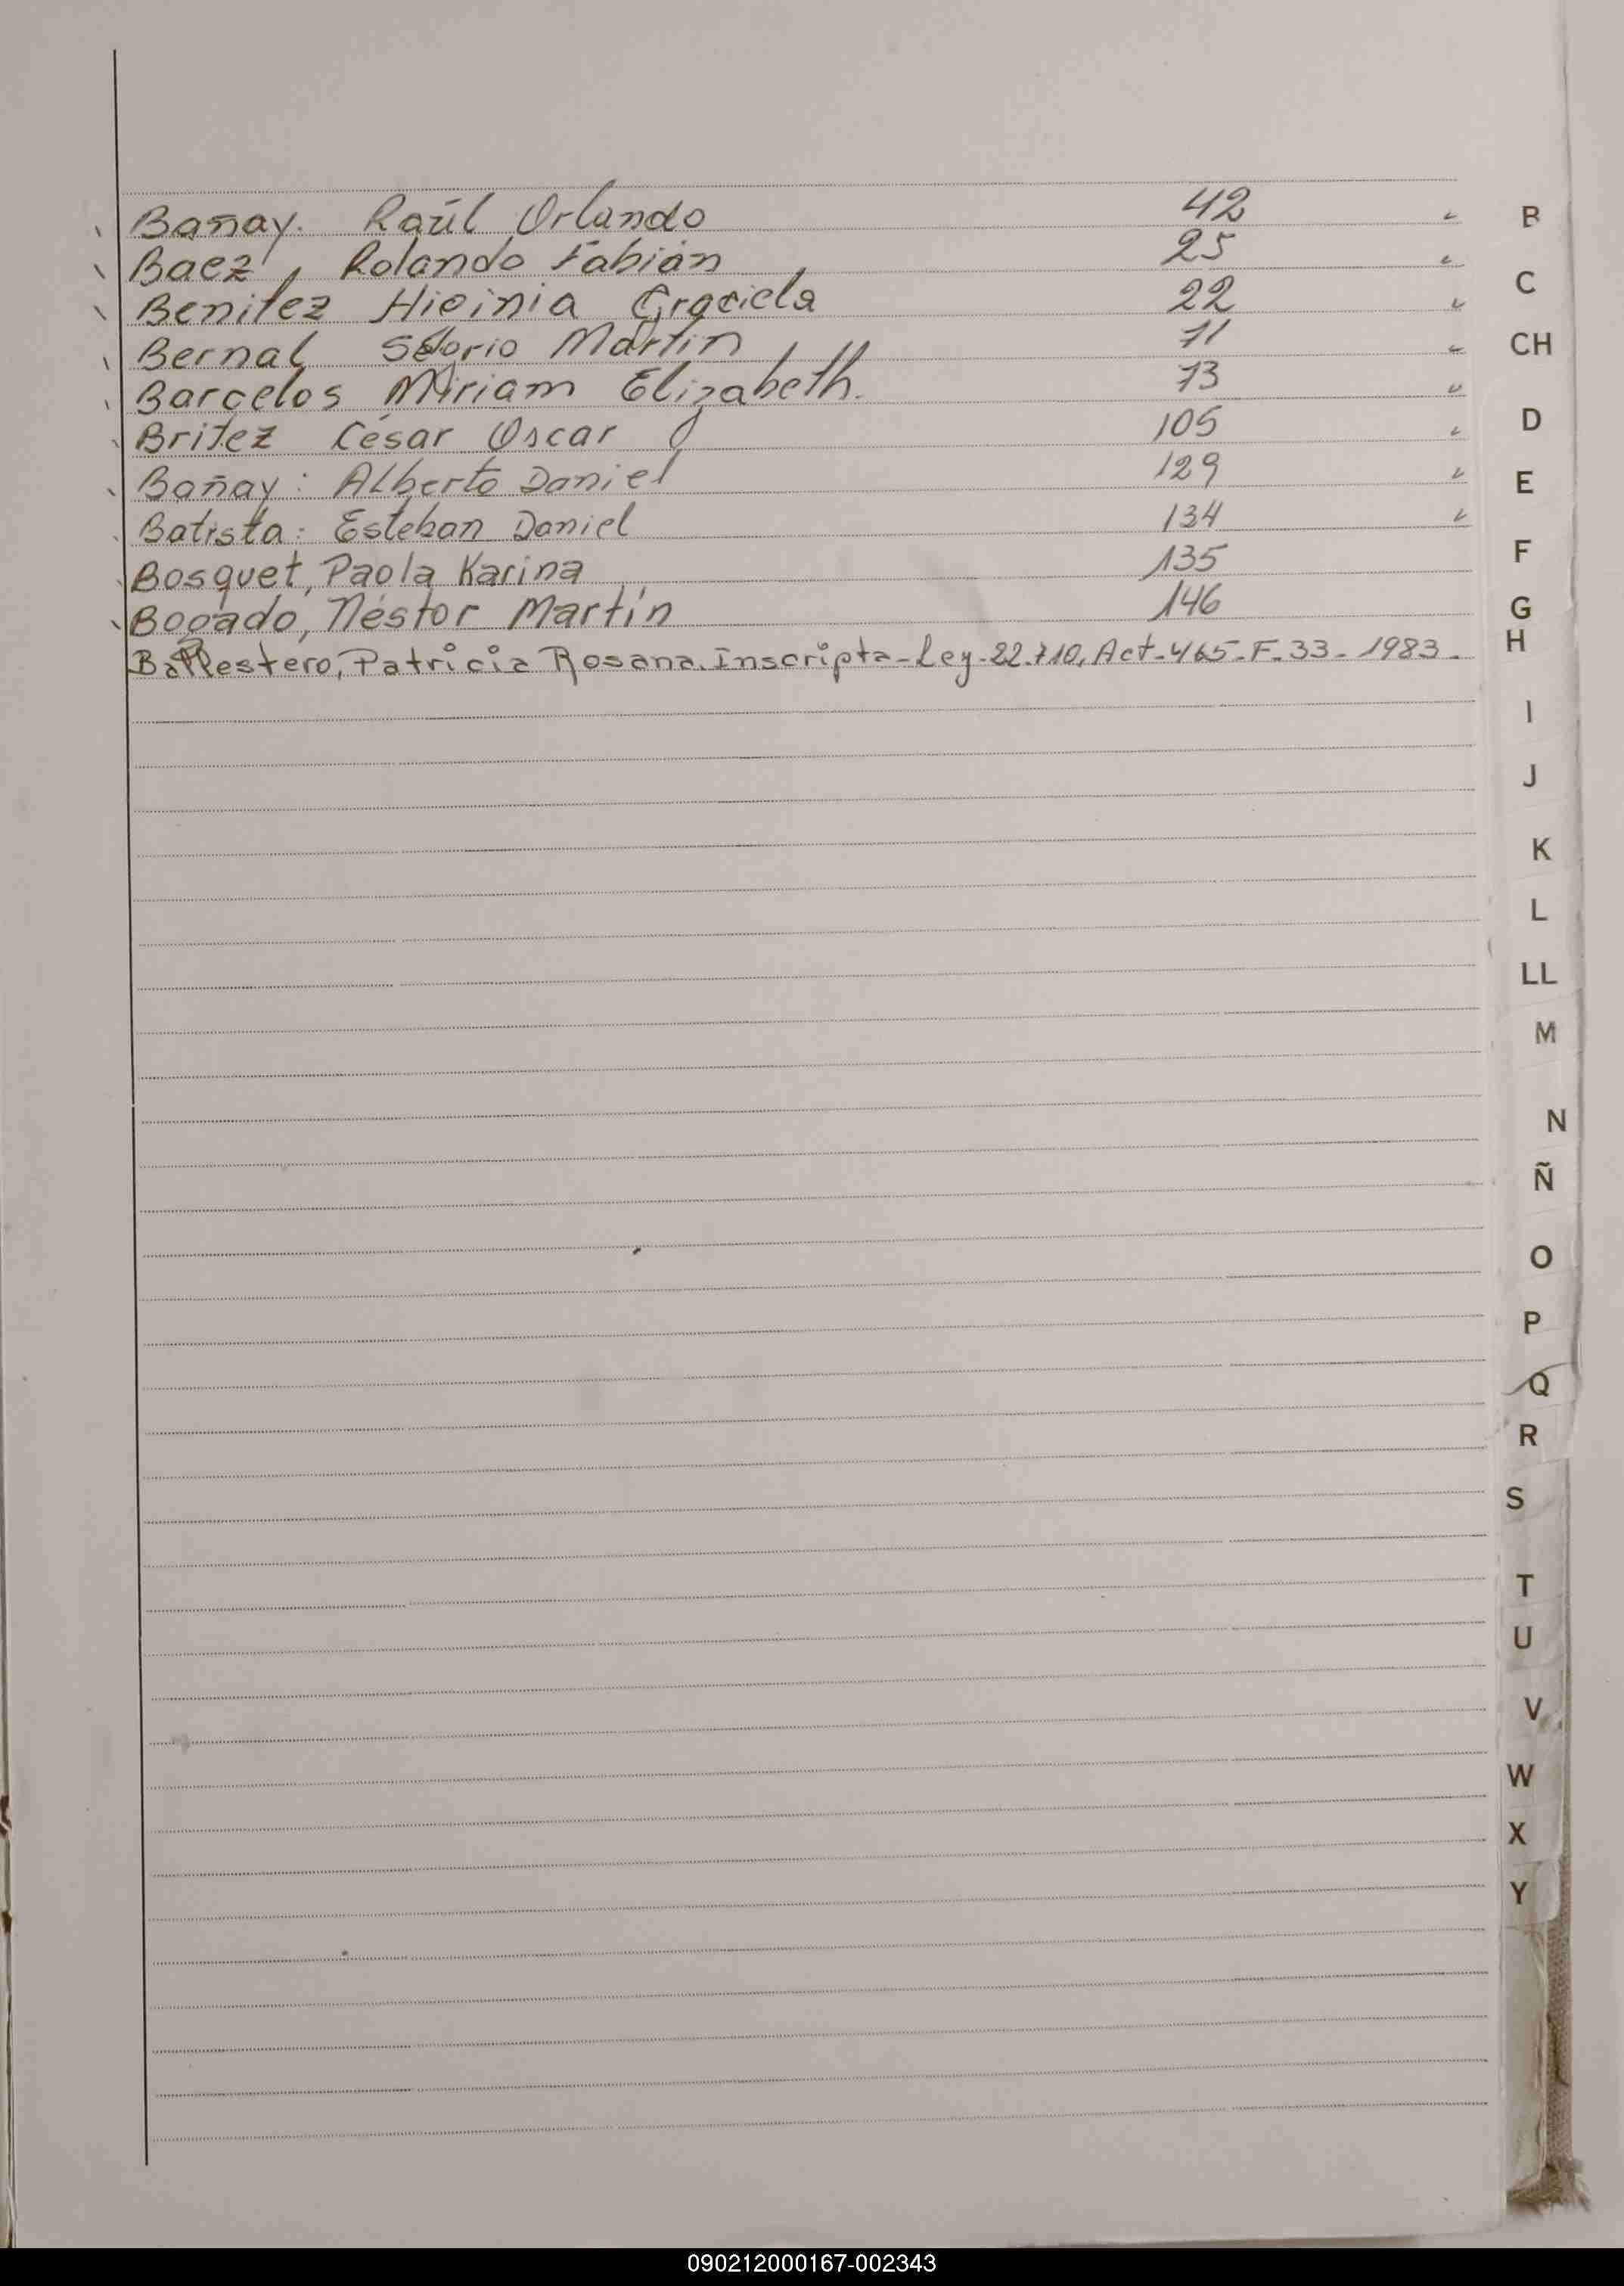 Bañay. Raúl Orlando 42
Baez, Rolando Fabián 25
Benitez Graciela 22
Bernal Martin 71
Barcelos Miriam Elizabeth. 73
Britez César Oscar 105
Bañay: Alberto Daniel 129
Batista: Esteban Daniel 134
Bosquet, Paola Karina 135
Bogado, Néstor Martín 146
Ballestero, Patricia Rosana. Inscripta-Ley-22.710, Act-465-F-33-1983-
B
C
CH
D
E
F
G
H
I
J
K
L
LL
M
N
Ñ
O
P
Q
R
S
T
U
V
W
X
Y
090212000167-002343